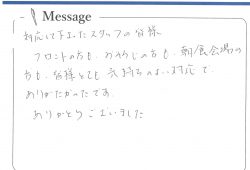 Message
対応して下さったスタッフの皆様
フロントの方も、おそうじの方も、朝食会場の
方も、皆様とても気持ちのよい対応で、
ありがたかったです。
ありがとうございました